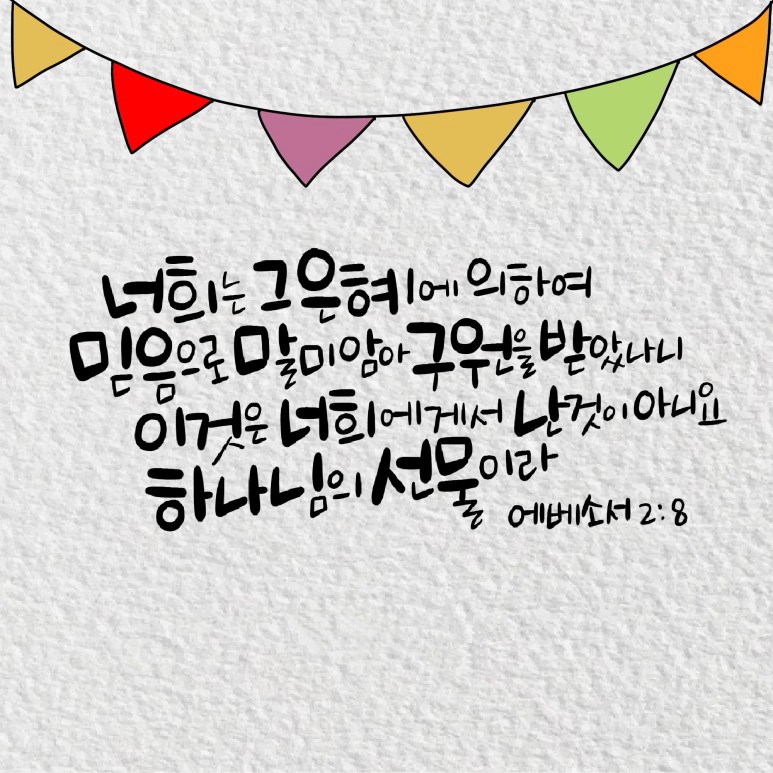 너희는 그 은혜에 의하여
믿음으로 말미암아 구원을 받았나니
이것은 너희에게서 난 것이 아니요
하나님의 선물이라
에베소서 2:8